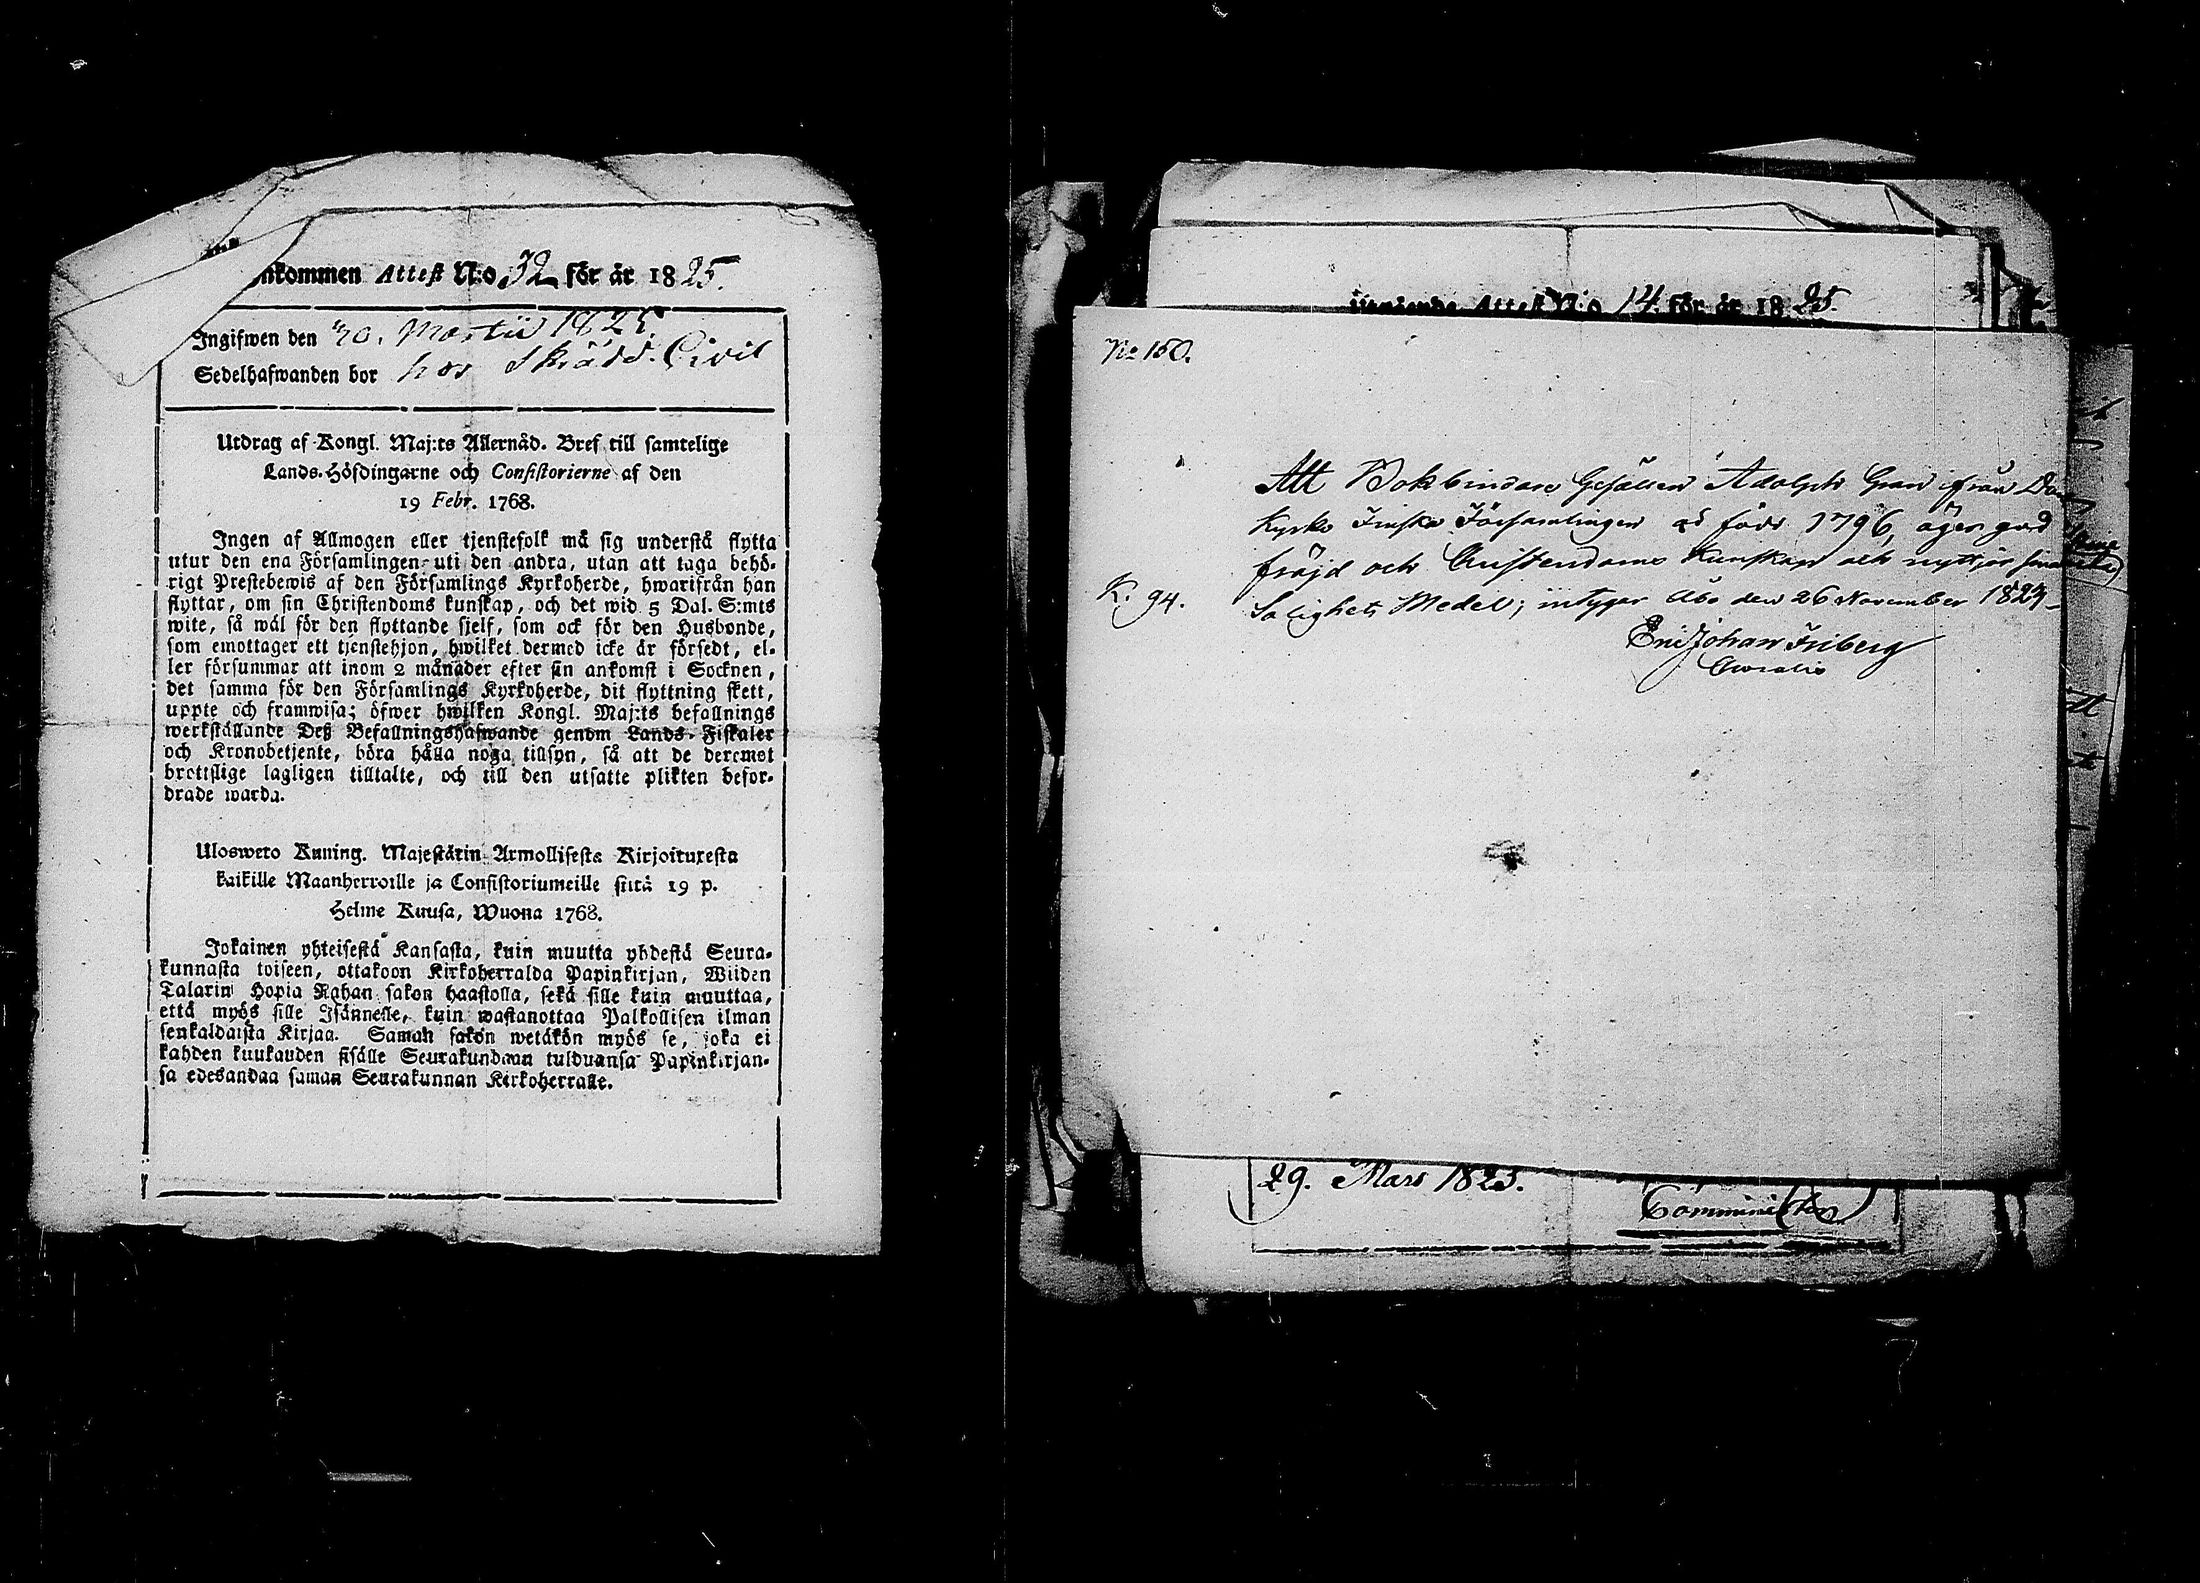 nkommen Attest N:o 32 för år 1825.
Ingifwen den 30. Martii 1825
Sedelhafwanden bor hos Skrädd. Civil
Utdrag af Kongl. Maj:ts Allernåd. Bref till samtelige
Lands-Höfdingarne och Consistorierne af den
19 Febr. 1768.
Ingen af Allmogen eller tjenstefolk må sig understå flytta
utur den ena Församlingen uti den andra, utan att taga behö-
rigt Prestebewis af den Församlings Kyrkoherde, hwarifrån han
flyttar, om sin Christendoms kunskap, och det wid 5 Dal. S:mts
wite, så wäl för den flyttande sjelf, som ock för den Husbonde,
som emottager ett tjenstehjon, hwilket dermed icke är försedt, el-
ler försummar att inom 2 månader efter sin ankomst i Socknen,
det samma för den Församlings Kyrkoherde, dit flyttning skett,
uppte och framwisa; öfwer hwilken Kongl. Maj:ts befallnings
werkställande Deß Befallningshafwande genom Lands-Fiskaler
och Kronobetjente, böra hålla noga tillsyn, så att de deremot
brottslige lagligen tilltalte, och till den utsatte plikten befor-
drade warda.
Ulosweto Kuning. Majestätin Armollisesta Kirjoituxesta
kaikille Maanherroille ja Consistoriumeille siitä 19 p.
Helme Kuusa, Wuona 1768.
Jokainen yhteisestä Kansasta, kuin muutta yhdestä Seura-
kunnasta toiseen, ottakoon Kirkoherralda Papinkirjan, Wiiden
Talarin Hopia Rahan sakon haastolla, sekä sille kuin muuttaa,
että myös sille Isännelle, kuin wastanottaa Palkollisen ilman
senkaldaista Kirjaa. Saman sakon wetäkön myös se, joka ei
kahden kuukauden sisälle Seurakundaan tulduansa Papinkirjan-
sa edesandaa saman Seurakunnan Kirkoherralle.
Attest N:o 14 för år 1825.
No 150.
Att Bokbindare Gesällen Adolph Gran ifrån Dom
Kyrko Finska Församlingen är född 1796, äger god
fräjd och Christendoms Kunskap och nyttjar sina
K. 94.
Salighets Medel; intygar Åbo den 26 November 1824
Eric Johan Friberg
29. Mars 1825.
Comminister